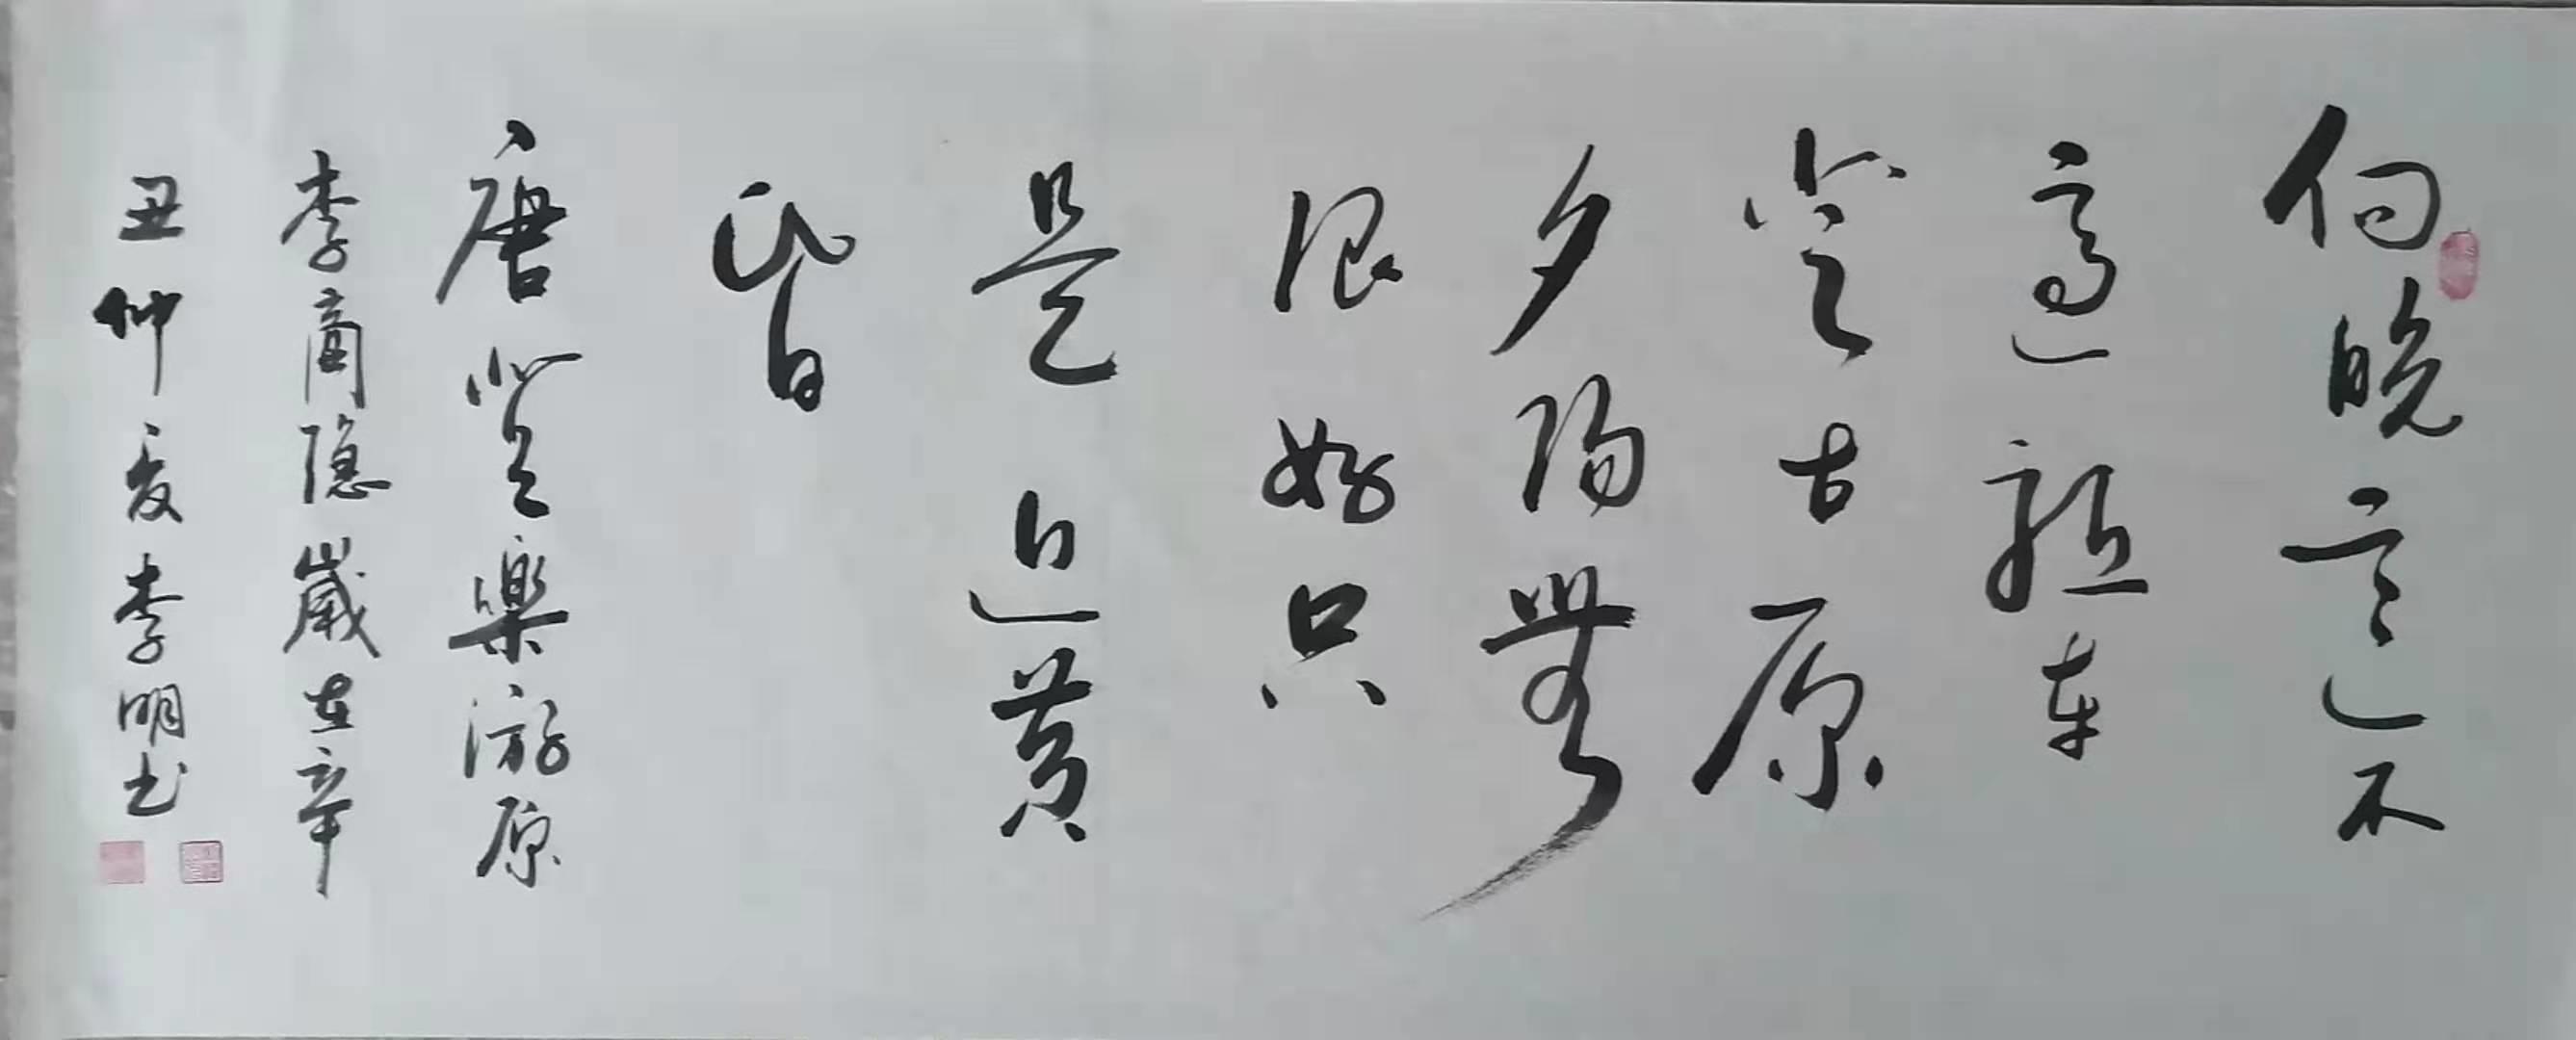 向晚意不
適驅車
登古原
夕陽無
限好只
是近黄
昏
唐登樂游原
李商隐歲在辛
丑仲夏李明书